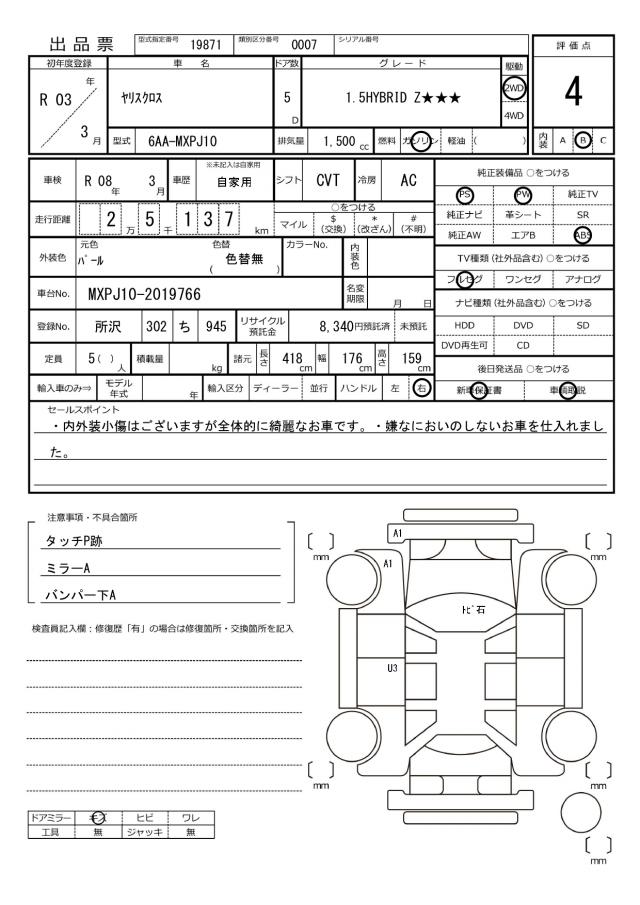 出品票 型式指定番号 19871 類別区分番号 0007 シリアル番号
評価点
4
内装 A B C
初年度登録 車名 ドア数 グレード 駆動
R 03 年 3 月
ヤリスクロス 5 D 1.5HYBRID Z★★★ 2WD
4WD
型式 6AA-MXPJ10 排気量 1,500 cc 燃料 ガソリン 軽油 ( )
車検 R 08 年 3 月 車歴 ※未記入は自家用 自家用 シフト CVT 冷房 AC
走行距離 2 万 5 千 1 3 7 km
○をつける
マイル $(交換) *(改ざん) #(不明)
外装色 元色 パール 色替 ( 色替無 ) カラーNo. 内装色
車台No. MXPJ10-2019766 名変期限 月 日
登録No. 所沢 302 ち 945 リサイクル預託金 8,340円預託済 未預託
定員 5( ) 人 積載量 kg 諸元 長さ 418 cm 幅 176 cm 高さ 159 cm
輸入車のみ⇒ モデル年式 年 輸入区分 ディーラー 並行 ハンドル 左 右
純正装備品 ○をつける
PS PW 純正TV
純正ナビ 革シート SR
純正AW エアB ABS
TV種類 (社外品含む) ○をつける
フルセグ ワンセグ アナログ
ナビ種類 (社外品含む) ○をつける
HDD DVD SD
DVD再生可 CD
後日発送品 ○をつける
新車保証書 車輌取説
セールスポイント
・内外装小傷はございますが全体的に綺麗なお車です。・嫌なにおいのしないお車を仕入れまし
た。
注意事項・不具合箇所
タッチP跡
ミラーA
バンパー下A
検査員記入欄：修復歴「有」の場合は修復箇所・交換箇所を記入
A1
A1
トビ石
U3
mm
mm
mm
mm
mm
ドアミラー キズ ヒビ ワレ
工具 無 ジャッキ 無